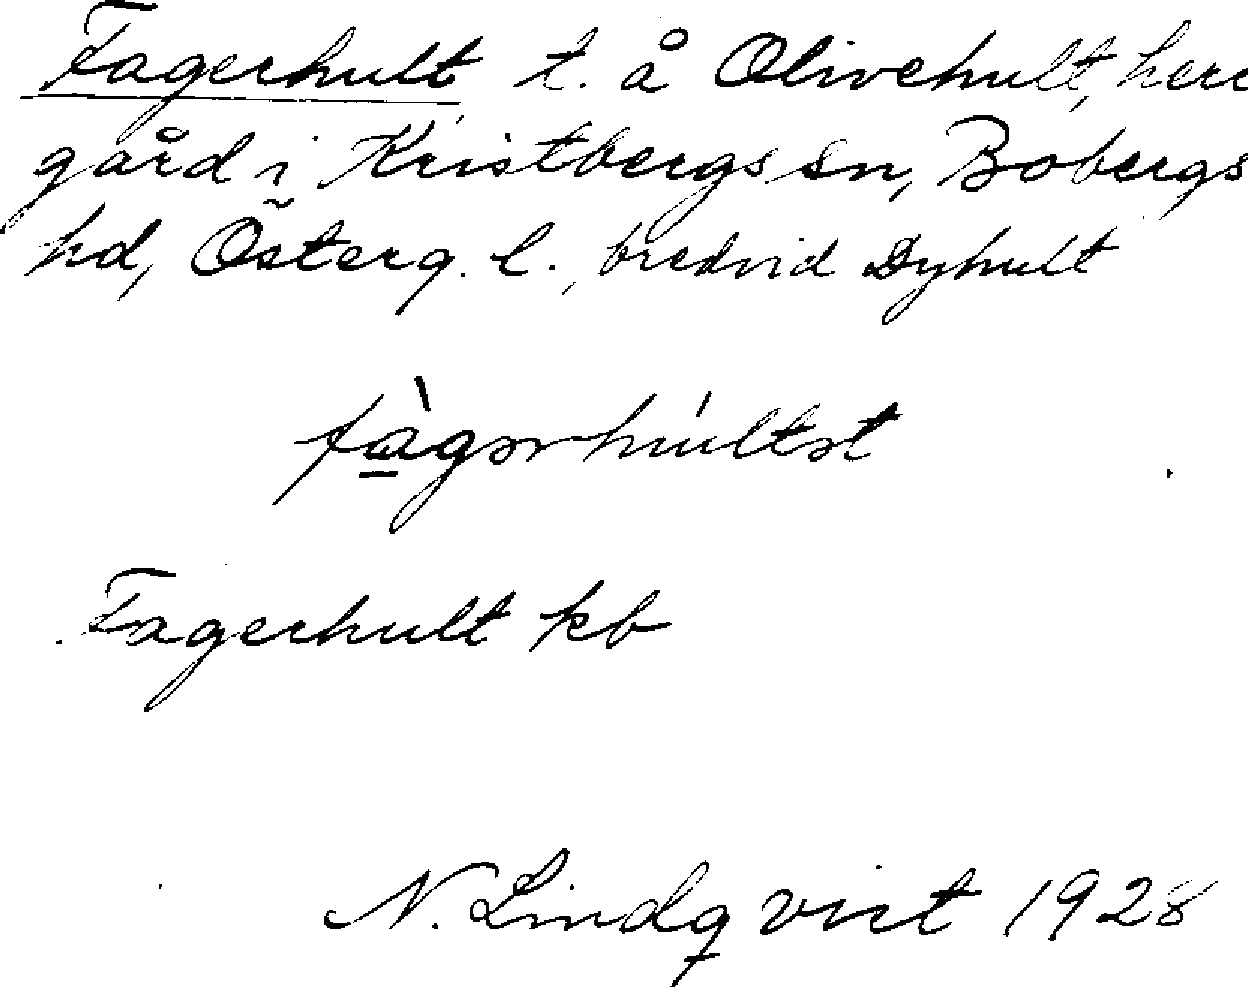 Fagerhult t. å Olivehult, herr
gård i Kristbergs sn, Bobergs
hd, Österg. l., bredvid Dyhult
fà̲gərhúltət
Fagerhult kb
N. Lindqvist 1928